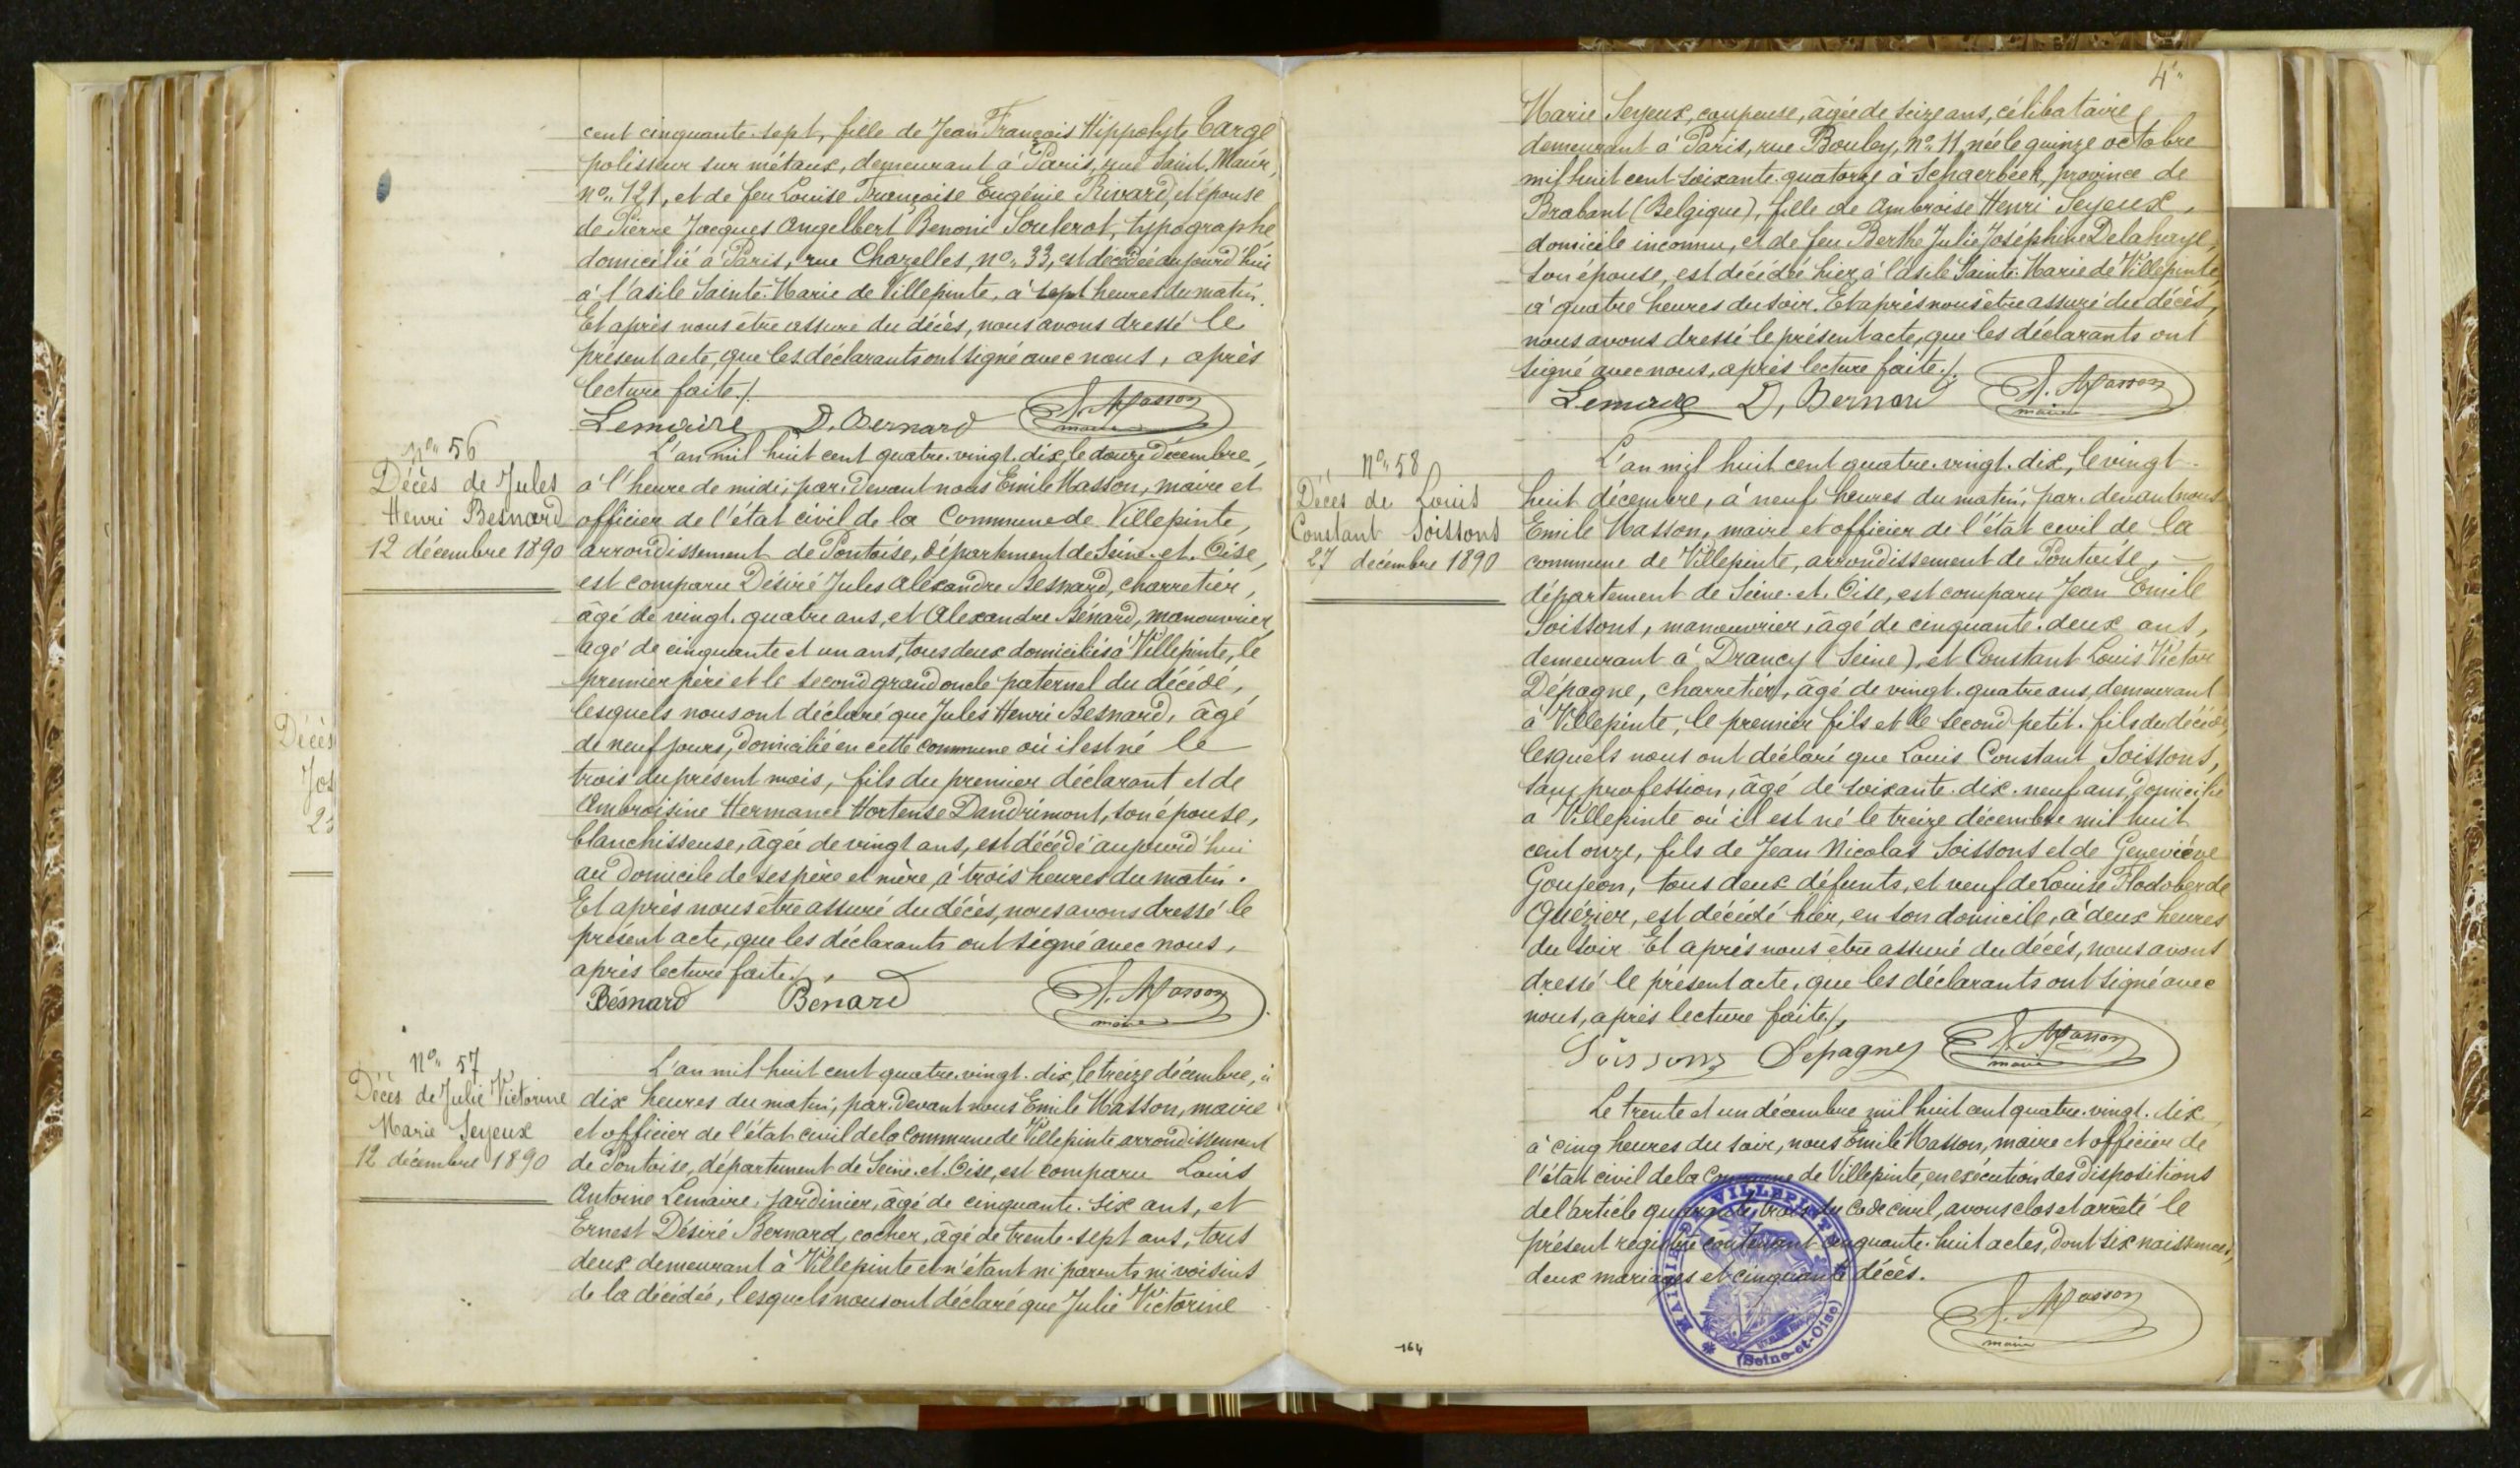 cent cinquante-sept, fille de Jean François Hippolyte Targe
polisseur sur métaux, demeurant à Paris, rue Saint-Maur,
no. 121, et de feu Louise Françoise Eugénie Rivard, et épouse
de Pierre Jacques Angelbert Benoni Soulerot, typographe
domicilié à Paris, rue Chazelles, no. 33, est décédée aujourd'hui
à l'asile Sainte-Marie de Villepinte, à sept heures du matin.
Et après nous être assuré du décès, nous avons dressé le
présent acte, que les déclarants ont signé avec nous, après
lecture faite./.
Lemaire D. Bernard E. Masson
maire
No. 56
Décès de Jules
Henri Besnard
12 décembre 1890
L'an mil huit cent quatre-vingt-dix, le douze décembre,
à l'heure de midi, par-devant nous Emile Masson, maire et
officier de l'état civil de la Commune de Villepinte,
arrondissement de Pontoise, département de Seine-et-Oise,
est comparu Désiré Jules Alexandre Besnard, charretier,
âgé de vingt-quatre ans, et Alexandre Bénard, manouvrier,
âgé de cinquante et un ans, tous deux domiciliés à Villepinte, le
premier père et le second grand oncle paternel du décédé,
lesquels nous ont déclaré que Jules Henri Besnard, âgé
de neuf jours, domicilié en cette commune où il est né le
trois du présent mois, fils du premier déclarant et de
Ambroisine Hermance Hortense Dandrimont, son épouse,
blanchisseuse, âgée de vingt ans, est décédé aujourd'hui
au domicile de ses père et mère, à trois heures du matin.
Et après nous être assuré du décès, nous avons dressé le
présent acte, que les déclarants ont signé avec nous,
après lecture faite./.
Bésnard Benard E. Masson
maire
No. 57
Décès de Julie Victorine
Marie Seyeux
12 décembre 1890
L'an mil huit cent quatre-vingt-dix, le treize décembre, à
dix heures du matin, par-devant nous Emile Masson, maire
et officier de l'état civil de la Commune de Villepinte arrondissement
de Pontoise, département de Seine-et-Oise, est comparu Louis
Antoine Lemaire, jardinier, âgé de cinquante-six ans, et
Ernest Désiré Bernard, cocher, âgé de trente-sept ans, tous
deux demeurant à Villepinte et n'étant ni parents ni voisins
de la décédée, lesquels nous ont déclaré que Julie Victorine
Décès
Jos
23
4
Marie Seyeux, coupeuse, âgée de seize ans, célibataire,
demeurant à Paris, rue Bouley, no. 11, née le quinze octobre
mil huit cent soixante-quatorze à Schaerbeek, province de
Brabant (Belgique), fille de Ambroise Henri Seyeux,
domicile inconnu, et de feu Berthe Julie Joséphine Delahaye,
son épouse, est décédée hier, à l'asile Sainte-Marie de Villepinte,
à quatre heures du soir. Et après nous être assuré du décès,
nous avons dressé le présent acte, que les déclarants ont
signé avec nous, après lecture faite./.
Lemaire D. Bernard E. Masson
maire
No. 58
Décès de Louis
Constant Soissons
27 décembre 1890
L'an mil huit cent quatre-vingt-dix, le vingt-
huit décembre, à neuf heures du matin, par-devant nous
Emile Masson, maire et officier de l'état civil de la
commune de Villepinte, arrondissement de Pontoise,
département de Seine-et-Oise, est comparu Jean Emile
Soissons, manouvrier, âgé de cinquante-deux ans,
demeurant à Drancy (Seine), et Constant Louis Victor
Dépagne, charretier, âgé de vingt-quatre ans, demeurant
à Villepinte, le premier fils et le second petit-fils du décédé,
lesquels nous ont déclaré que Louis Constant Soissons,
sans profession, âgé de soixante-dix-neuf ans, domicilié
à Villepinte où il est né le treize décembre mil huit
cent onze, fils de Jean Nicolas Soissons et de Geneviève
Goujeon, tous deux défunts, et veuf de Louise Flodoberde
Quézier, est décédé hier, en son domicile, à deux heures
du soir. Et après nous être assuré du décès, nous avons
dressé le présent acte, que les déclarants ont signé avec
nous, après lecture faite./.
Soissons Depagne E. Masson
maire
Le trente et un décembre mil huit cent quatre-vingt-dix
à cinq heures du soir, nous Emile Masson, maire et officier de
l'état civil de la Commune de Villepinte, en exécution des dispositions
de l'article quarante-trois du Code civil, avons clos et arrêté le
présent registre contenant cinquante-huit actes, dont six naissances,
deux mariages et cinquante décès.
E. Masson
maire
MAIRIE DE VILLEPINTE
(Seine-et-Oise)
164